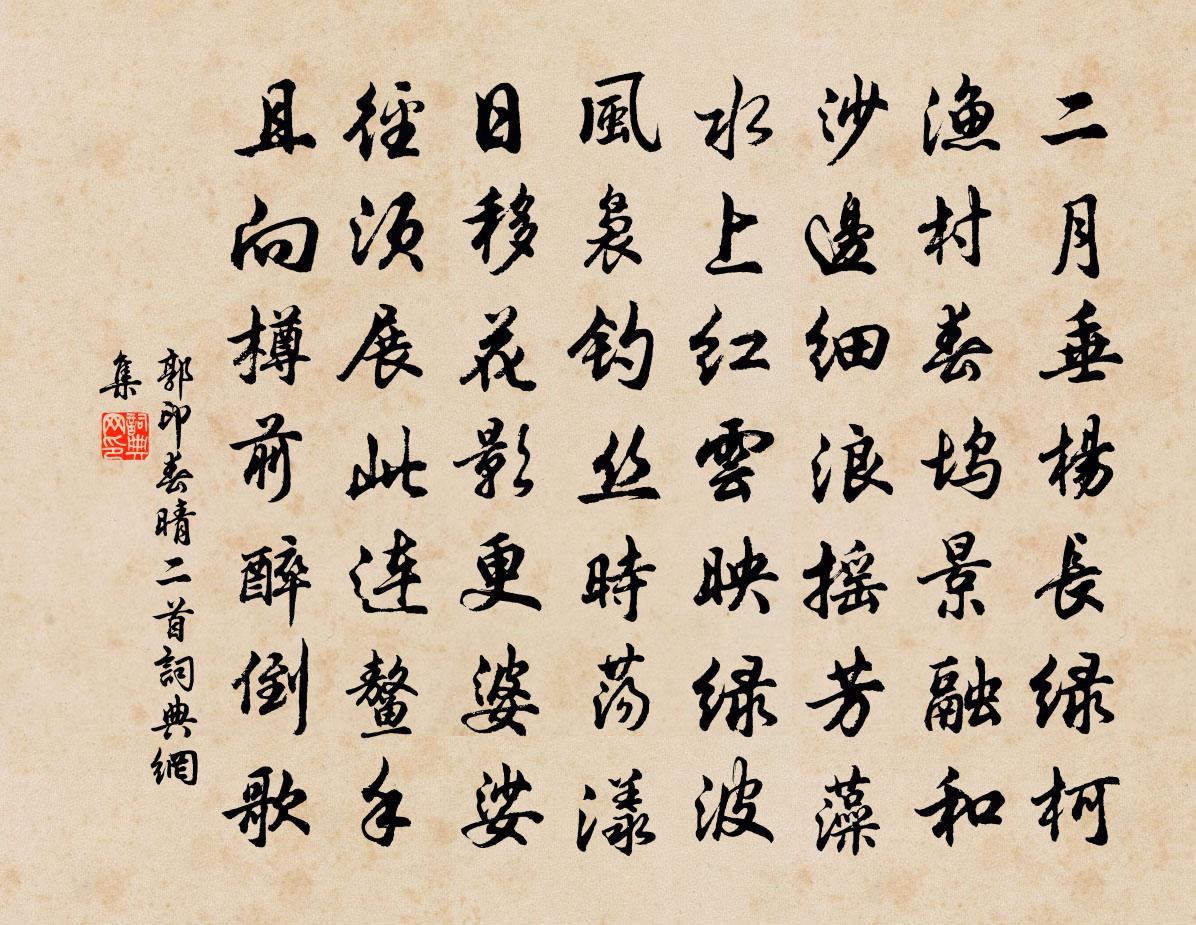 二月垂楊長緑柯
漁村春塢景融和
沙邊細浪摇芳藻
水上紅雲映緑波
風裊釣丝時蕩漾
日移花影更婆娑
徑須展此連鳌手
且向樽前醉倒歌
郭印春晴二首詞典網
集
詞典网印